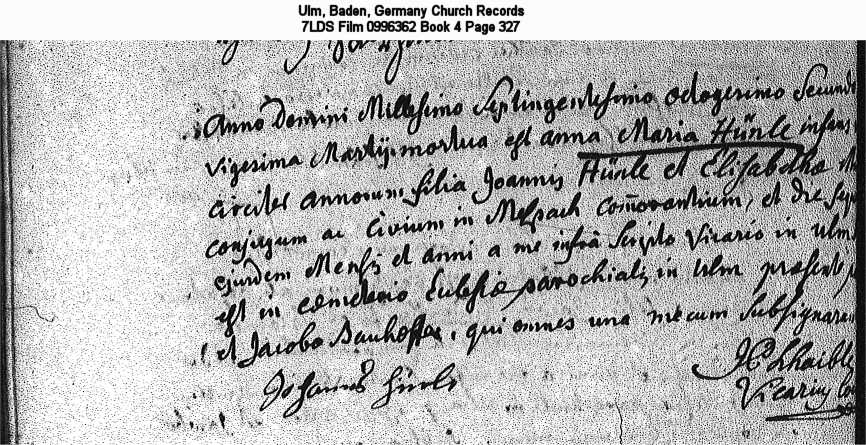 Ulm, Baden, Germany Church Records
7LDS Film 0996362 Book 4 Page 327
Anno Domini Millesimo Septingentesimo octogesimo Secundo
vigesima Martij mortua est anna Maria Hünle infans
circiter annorum filia Joannis Hünle et Elisabetha
conjugum ac Civium in Mespach com̄orantium, et die
ejusdem Mensis et anni a me infrà Scripto Vicario in ulm
est in cemeterio Ecclesiæ parochialis in ulm presente
et Jacobo Bauhoffer, qui omnes una mecum Subsignare
Johannes Hünle
Vicarius